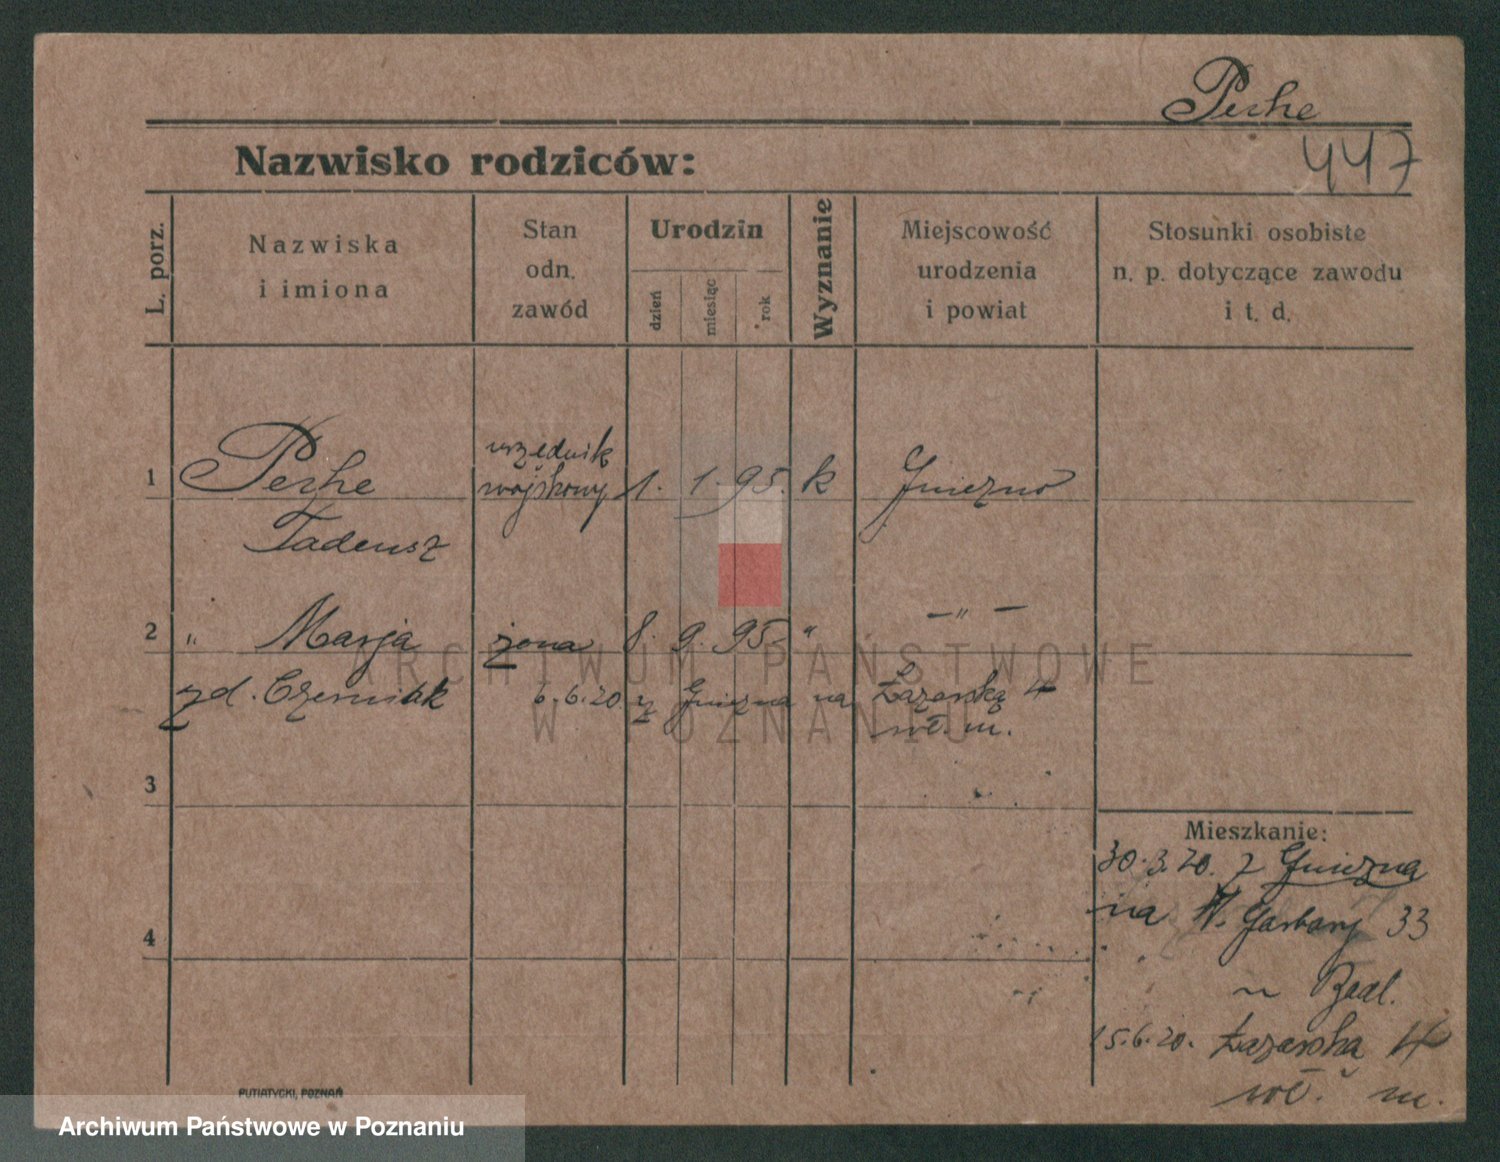 Perhe
Nazwisko rodziców:
447
L. porz.
Nazwiska
i imiona
Stan
odn.
zawód
Urodzin
dzień
miesiąc
rok
Wyznanie
Miejscowość
urodzenia
i powiat
Stosunki osobiste
n. p. dotyczące zawodu
i t. d.
1 Perhe urzędnik wojskowy 1. 1. 95. k Gniezno
Tadeusz
2 " Marja żona 8. 9. 95. " — " —
zd. Czerniak 6.6.20 z Gniezna na Łazarską 4
wł. m.
3
4
Mieszkanie:
30.3.20. z Gniezna
na W. Garbary 33
u
15.6.20. Łazarska 4
wł. m.
PUTIATYCKI, POZNAŃ
ARCHIWUM PAŃSTWOWE
W POZNANIU
Archiwum Państwowe w Poznaniu